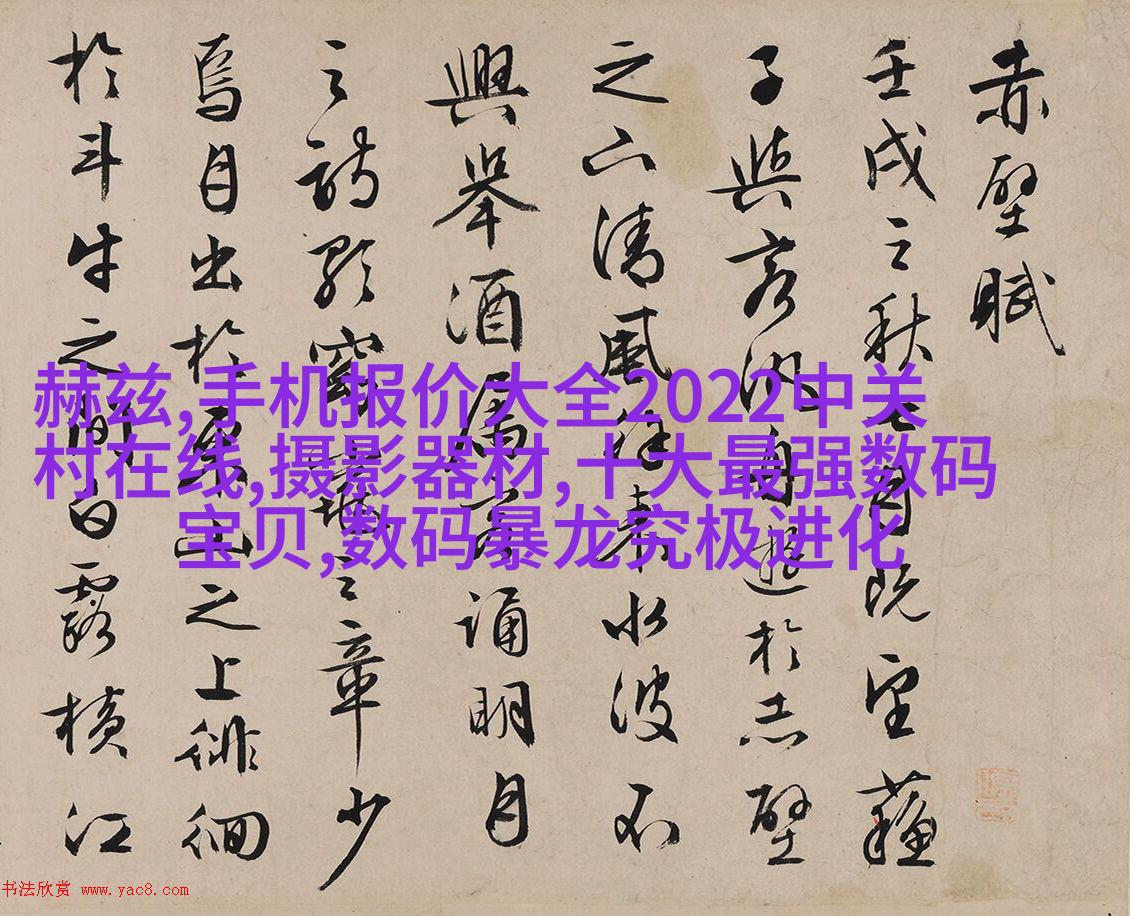 赤壁賦
壬戌之秋七月既望蘇
子與客泛舟遊於赤壁
之下清風徐來水波不
興舉酒屬客誦明月
之詩歌窈窕之章少
焉月出於東山之上徘徊
於斗牛之間白露橫江
赫兹,手机报价大全2022中关
村在线,摄影器材,十大最强数码
宝贝,数码暴龙究极进化
书法欣赏 www.yac8.com